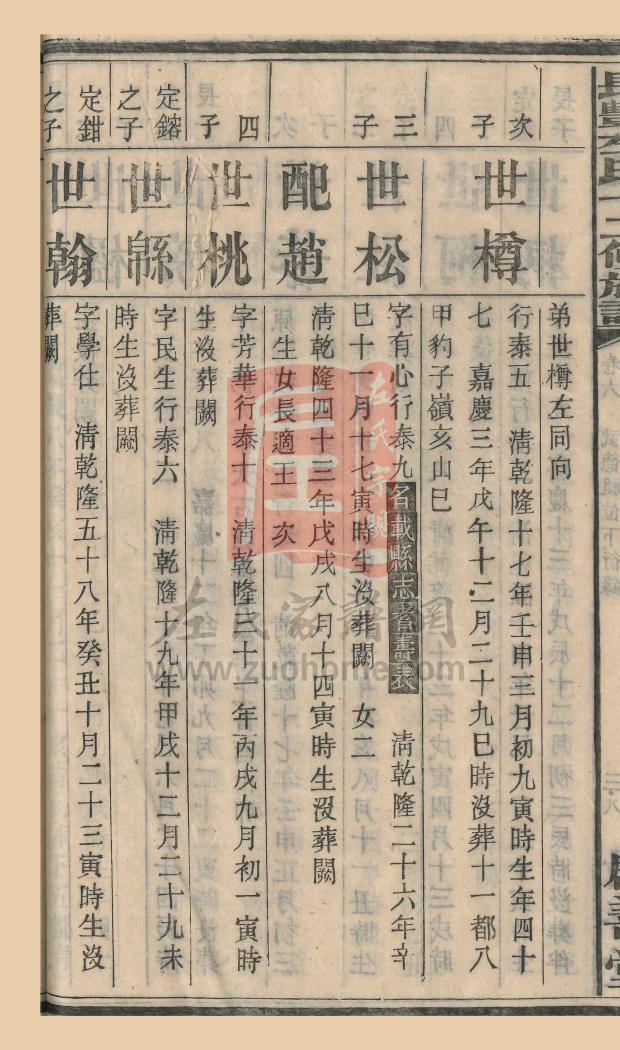 弟世樽左同向
次子
世樽
行泰五 清乾隆十七年壬申三月初九寅時生年四十
七 嘉慶三年戊午十二月二十九巳時沒葬十一都八
甲豹子嶺亥山巳
三子
世松
字有心行泰九名載縣志耆壽表 清乾隆二十六年辛
巳十一月十七寅時生沒葬闕 女二
配趙
清乾隆四十三年戊戌八月十四寅時生沒葬闕
生女長適王 次
四子
世桃
字芳華行泰十 清乾隆三十一年丙戌九月初一寅時
生沒葬闕
定鎔之子
世緜
字民生行泰六 清乾隆十九年甲戌十二月二十九未
時生沒葬闕
定鉗之子
世翰
字學仕 清乾隆五十八年癸丑十月二十三寅時生沒
葬闕
左氏家譜網
www.zuohome.com